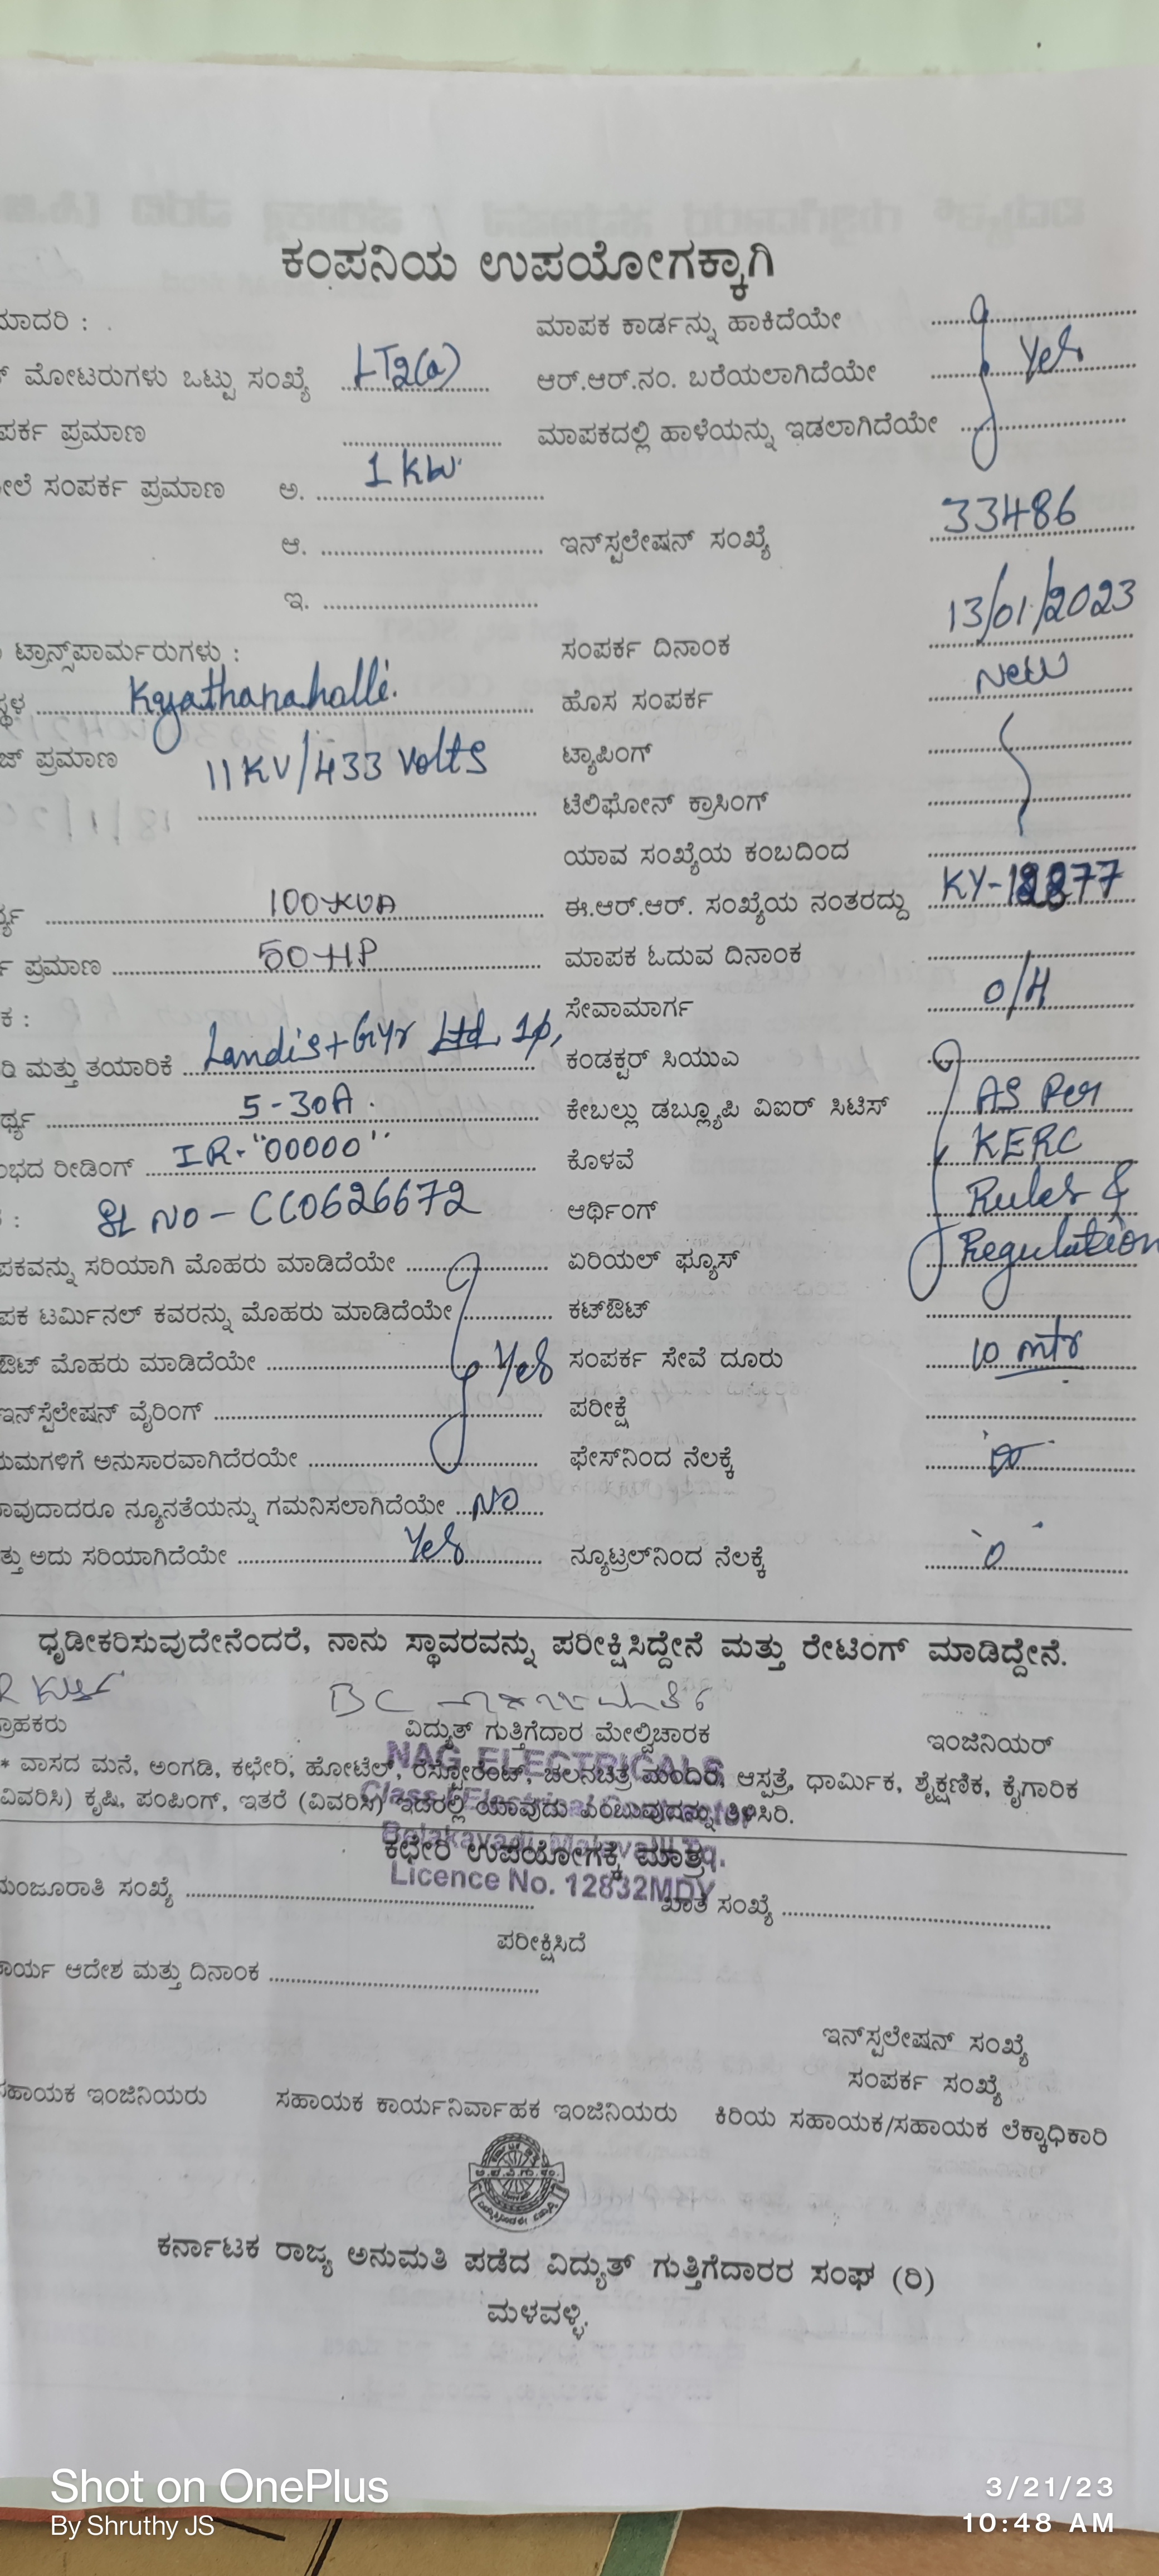 ಕಂಪನಿಯ ಉಪಯೋಗಕ್ಕಾಗಿ
ಮಾದರಿ : ಮಾಪಕ ಕಾರ್ಡನ್ನು ಹಾಕಿದೆಯೇ
ಮೋಟರುಗಳು ಒಟ್ಟು ಸಂಖ್ಯೆ LT2(a) ಆರ್.ಆರ್.ನಂ. ಬರೆಯಲಾಗಿದೆಯೇ Yes
ಪರ್ಕ ಪ್ರಮಾಣ ಮಾಪಕದಲ್ಲಿ ಹಾಳೆಯನ್ನು ಇಡಲಾಗಿದೆಯೇ
ಸಂಪರ್ಕ ಪ್ರಮಾಣ ಅ. 1 KW
ಆ. ಇನ್‌ಸ್ಪಲೇಷನ್ ಸಂಖ್ಯೆ 33486
ಇ.
ಟ್ರಾನ್ಸ್‌ಪಾರ್ಮರುಗಳು : ಸಂಪರ್ಕ ದಿನಾಂಕ 13/01/2023
ಸ್ಥಳ Kyathanahalli. ಹೊಸ ಸಂಪರ್ಕ New
ಜ್ ಪ್ರಮಾಣ 11KV/433 Volts ಟ್ಯಾಪಿಂಗ್
ಟೆಲಿಫೋನ್ ಕ್ರಾಸಿಂಗ್
ಯಾವ ಸಂಖ್ಯೆಯ ಕಂಬದಿಂದ
100 KVA ಈ.ಆರ್.ಆರ್. ಸಂಖ್ಯೆಯ ನಂತರದ್ದು
ಪ್ರಮಾಣ 50 HP ಮಾಪಕ ಓದುವ ದಿನಾಂಕ
ಕ : ಸೇವಾಮಾರ್ಗ O/H
ರಿ ಮತ್ತು ತಯಾರಿಕೆ Landis+Gyr Ltd, 1ϕ, ಕಂಡಕ್ಟರ್ ಸಿಯುಎ
ರ್ಥ್ಯ 5-30A. ಕೇಬಲ್ಲು ಡಬ್ಲ್ಯೂಪಿ ವಿಐರ್ ಸಿಟಿಸ್ AS Per
ಭದ ರೀಡಿಂಗ್ IR-"00000" ಕೊಳವೆ KERC
: SL NO - CC0626672 ಆರ್ಥಿಂಗ್ Rules &
ಪಕವನ್ನು ಸರಿಯಾಗಿ ಮೊಹರು ಮಾಡಿದೆಯೇ ಏರಿಯಲ್ ಫ್ಯೂಸ್ Regulation
ಪಕ ಟರ್ಮಿನಲ್ ಕವರನ್ನು ಮೊಹರು ಮಾಡಿದೆಯೇ ಕಟ್‌ಔಟ್
ಔಟ್ ಮೊಹರು ಮಾಡಿದೆಯೇ Yes ಸಂಪರ್ಕ ಸೇವೆ ದೂರು 10 mtr
ಇನ್‌ಸ್ಟೆಲೇಷನ್ ವೈರಿಂಗ್ ಪರೀಕ್ಷೆ
ಯಮಗಳಿಗೆ ಅನುಸಾರವಾಗಿದೆರಯೇ ಫೇಸ್‌ನಿಂದ ನೆಲಕ್ಕೆ
ಾವುದಾದರೂ ನ್ಯೂನತೆಯನ್ನು ಗಮನಿಸಲಾಗಿದೆಯೇ NO
ತ್ತು ಅದು ಸರಿಯಾಗಿದೆಯೇ Yes ನ್ಯೂಟ್ರಲ್‌ನಿಂದ ನೆಲಕ್ಕೆ 0
ಧೃಡೀಕರಿಸುವುದೇನೆಂದರೆ, ನಾನು ಸ್ಥಾವರವನ್ನು ಪರೀಕ್ಷಿಸಿದ್ದೇನೆ ಮತ್ತು ರೇಟಿಂಗ್ ಮಾಡಿದ್ದೇನೆ.
ಗ್ರಾಹಕರು ವಿದ್ಯುತ್ ಗುತ್ತಿಗೆದಾರ ಮೇಲ್ವಿಚಾರಕ ಇಂಜಿನಿಯರ್
NAG ELECTRICALS
* ವಾಸದ ಮನೆ, ಅಂಗಡಿ, ಕಛೇರಿ, ಹೋಟೆಲ್, ರೆಸ್ಟೋರೆಂಟ್, ಚಲನಚಿತ್ರ ಮಂದಿರ, ಆಸ್ಪತ್ರೆ, ಧಾರ್ಮಿಕ, ಶೈಕ್ಷಣಿಕ, ಕೈಗಾರಿಕ
ವಿವರಿಸಿ) ಕೃಷಿ, ಪಂಪಿಂಗ್, ಇತರೆ (ವಿವರಿಸಿ) ಇದರಲ್ಲಿ ಯಾವುದು ಎಂಬುವುದನ್ನು ತಿಳಿಸಿರಿ.
ಕಛೇರಿ ಉಪಯೋಗಕ್ಕೆ ಮಾತ್ರ
Licence No. 12832MDY
ಮಂಜೂರಾತಿ ಸಂಖ್ಯೆ ಖಾತೆ ಸಂಖ್ಯೆ
ಪರೀಕ್ಷಿಸಿದೆ
ಕಾರ್ಯ ಆದೇಶ ಮತ್ತು ದಿನಾಂಕ
ಇನ್‌ಸ್ಪಲೇಷನ್ ಸಂಖ್ಯೆ
ಸಂಪರ್ಕ ಸಂಖ್ಯೆ
ಸಹಾಯಕ ಇಂಜಿನಿಯರು ಸಹಾಯಕ ಕಾರ್ಯನಿರ್ವಾಹಕ ಇಂಜಿನಿಯರು ಕಿರಿಯ ಸಹಾಯಕ/ಸಹಾಯಕ ಲೆಕ್ಕಾಧಿಕಾರಿ
ಕರ್ನಾಟಕ ರಾಜ್ಯ ಅನುಮತಿ ಪಡೆದ ವಿದ್ಯುತ್ ಗುತ್ತಿಗೆದಾರರ ಸಂಘ (ರಿ)
ಮಳವಳ್ಳಿ.
Shot on OnePlus
By Shruthy JS
3/21/23
10:48 AM